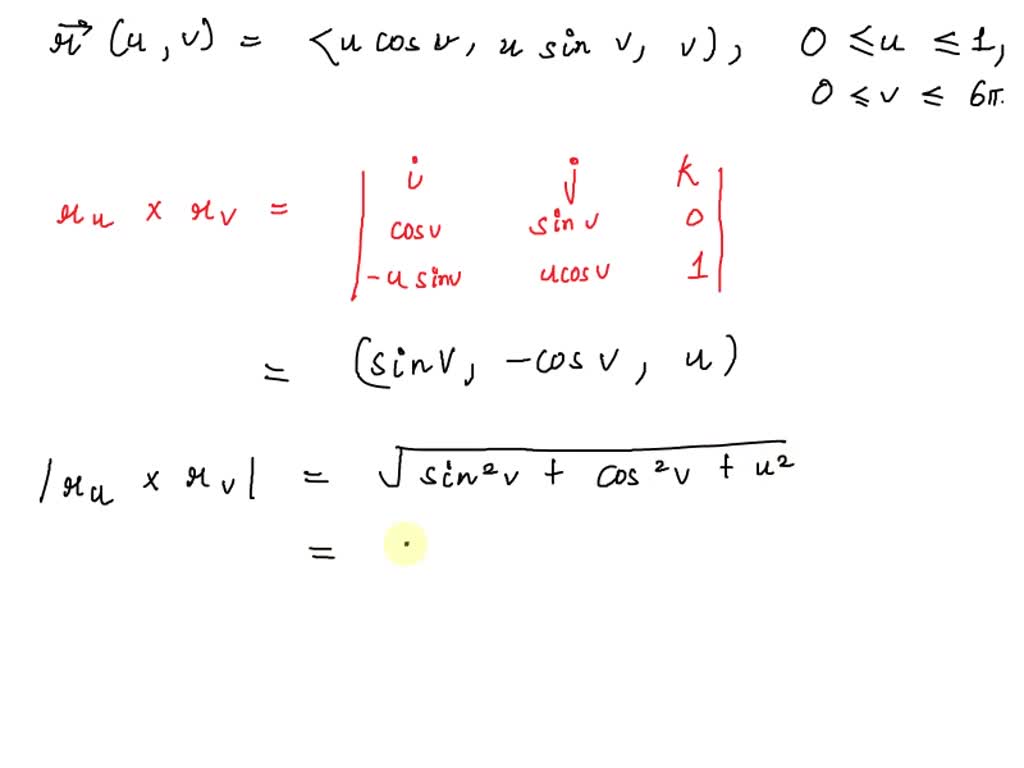 r⃗ (u, v) = <u cos v, u sin v, v), 0 ≤ u ≤ 1,
0 ≤ v ≤ 6π.
r_u × r_v = | i j k |
| cos v sin v 0 |
| -u sin v u cos v 1 |
= (sin v, -cos v, u)
|r_u × r_v| = √(sin²v + cos²v + u²)
=